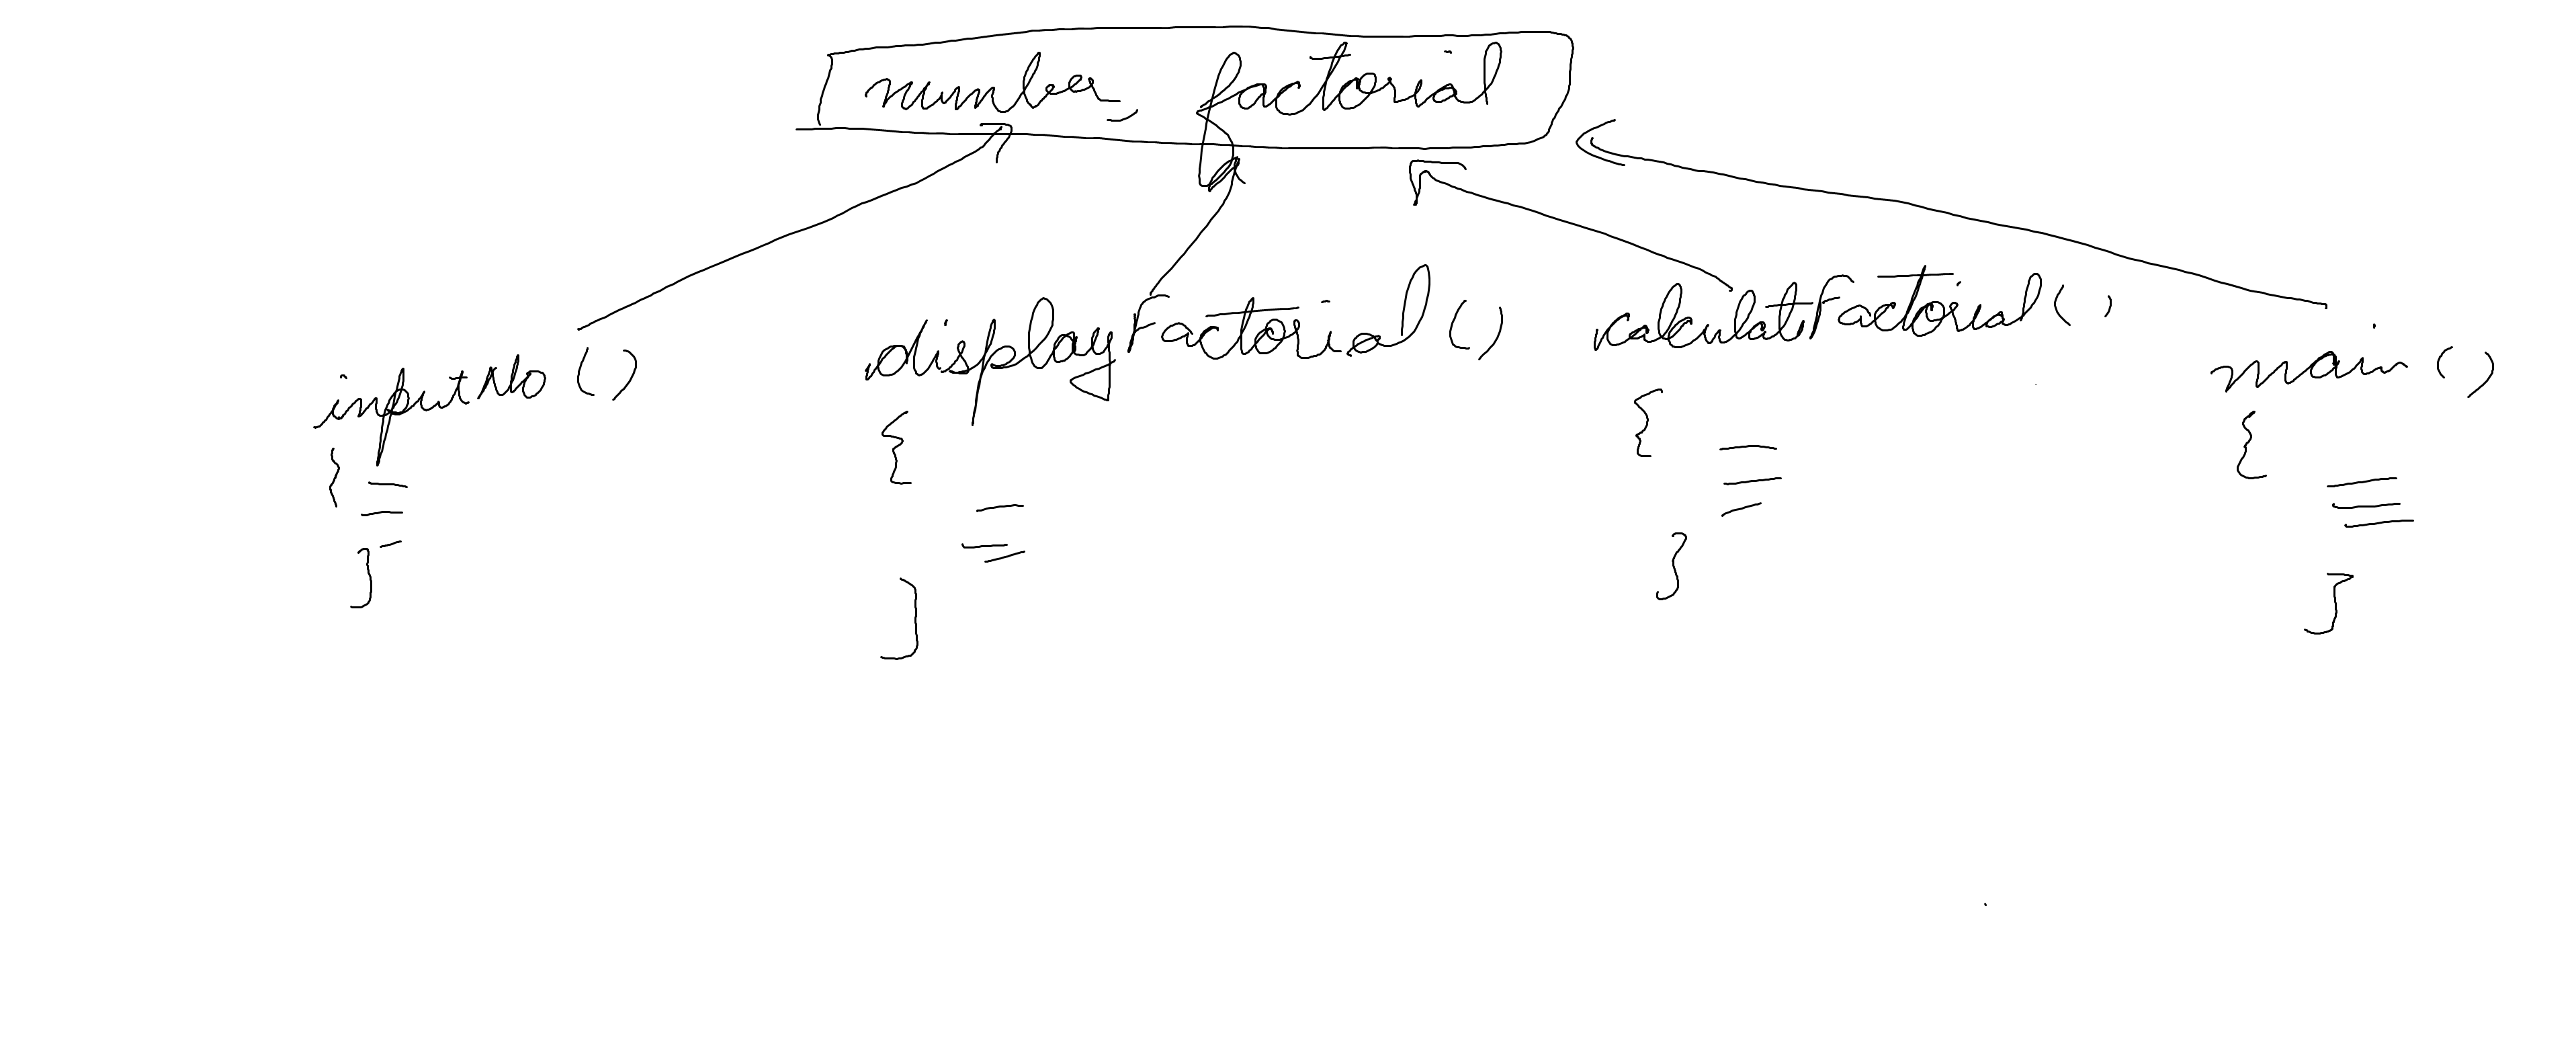 number, factorial
inputNo() displayFactorial() calculatFactorial() main()
{ { { {
} } } }